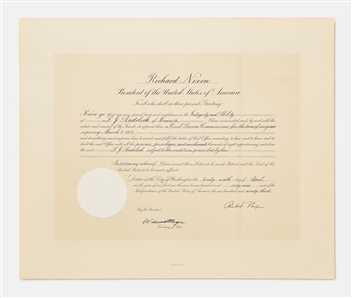 Richard Nixon
President of the United States of America.
To all who shall see these presents, Greeting:
Know ye, that reposing special trust and confidence in the Integrity and Ability
of L. J. Andolsek, of Minnesota, I have nominated and, by and with the
advice and consent of the Senate, do appoint him a Civil Service Commissioner for the term of six years
expiring March 1, 1975,
and do authorize and empower him to execute and fulfil the duties of that Office according to law, and to have and to
hold the said Office with all the powers, privileges, and emoluments thereunto of right appertaining unto him
the said L. J. Andolsek, subject to the conditions prescribed by law.
In testimony whereof I have caused these Letters to be made Patent and the Seal of the
United States to be hereunto affixed.
Done at the City of Washington this twenty-ninth day of April
in the year of our Lord one thousand nine hundred and sixty-nine and of the
Independence of the United States of America the one hundred and ninety-third.
Richard Nixon
By the President:
Secretary of State.